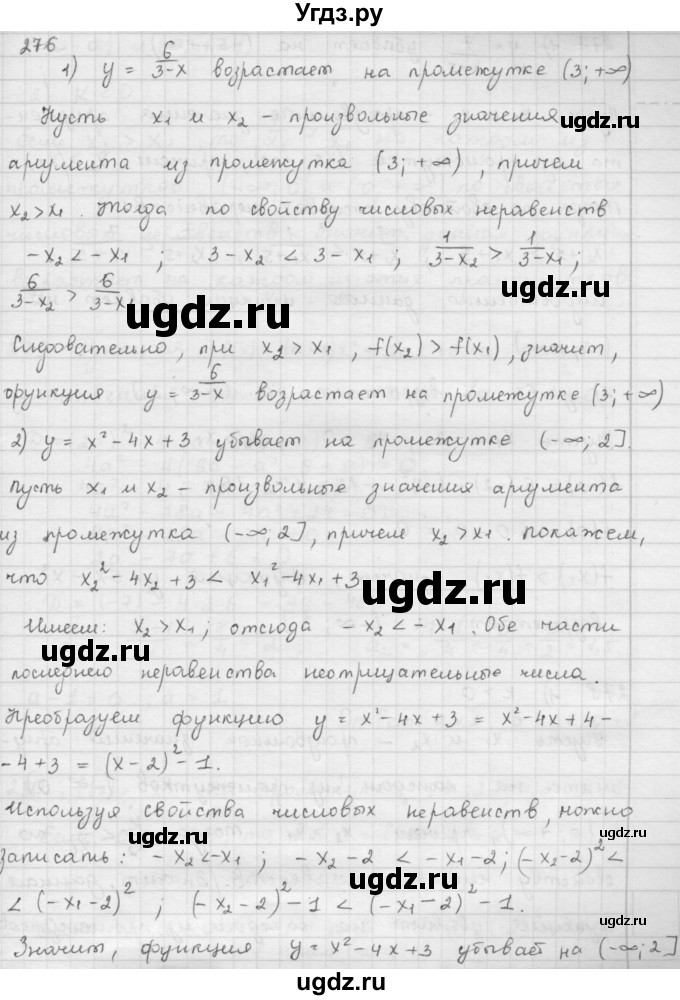 Угдз.ру
276
1) y = 6/(3-x) возрастает на промежутке (3; +∞)
Пусть x₁ и x₂ – произвольные значения
аргумента из промежутка (3; +∞), причем
x₂ > x₁. Тогда по свойству числовых неравенств
-x₂ < -x₁ ; 3-x₂ < 3-x₁ ; 1/(3-x₂) > 1/(3-x₁) ;
6/(3-x₂) > 6/(3-x₁)
Следовательно, при x₂ > x₁, f(x₂) > f(x₁), значит,
функция y = 6/(3-x) возрастает на промежутке (3; +∞)
2) y = x² - 4x + 3 убывает на промежутке (-∞; 2].
Пусть x₁ и x₂ – произвольные значения аргумента
из промежутка (-∞; 2], причем x₂ > x₁. Покажем,
что x₂² - 4x₂ + 3 < x₁² - 4x₁ + 3
Имеем: x₂ > x₁ ; отсюда -x₂ < -x₁. Обе части
последнего неравенства неотрицательные числа.
Преобразуем функцию y = x² - 4x + 3 = x² - 4x + 4 -
- 4 + 3 = (x-2)² - 1.
Используя свойства числовых неравенств, можно
записать: -x₂ < -x₁ ; -x₂ - 2 < -x₁ - 2 ; (-x₂-2)² <
< (-x₁-2)² ; (-x₂-2)² - 1 < (-x₁-2)² - 1.
Значит, функция y = x² - 4x + 3 убывает на (-∞; 2]
угдз.ру
угдз.ру
угдз.ру
угдз.ру
угдз.ру
угдз.ру
угдз.ру
угдз.ру
угдз.ру
угдз.ру
угдз.ру